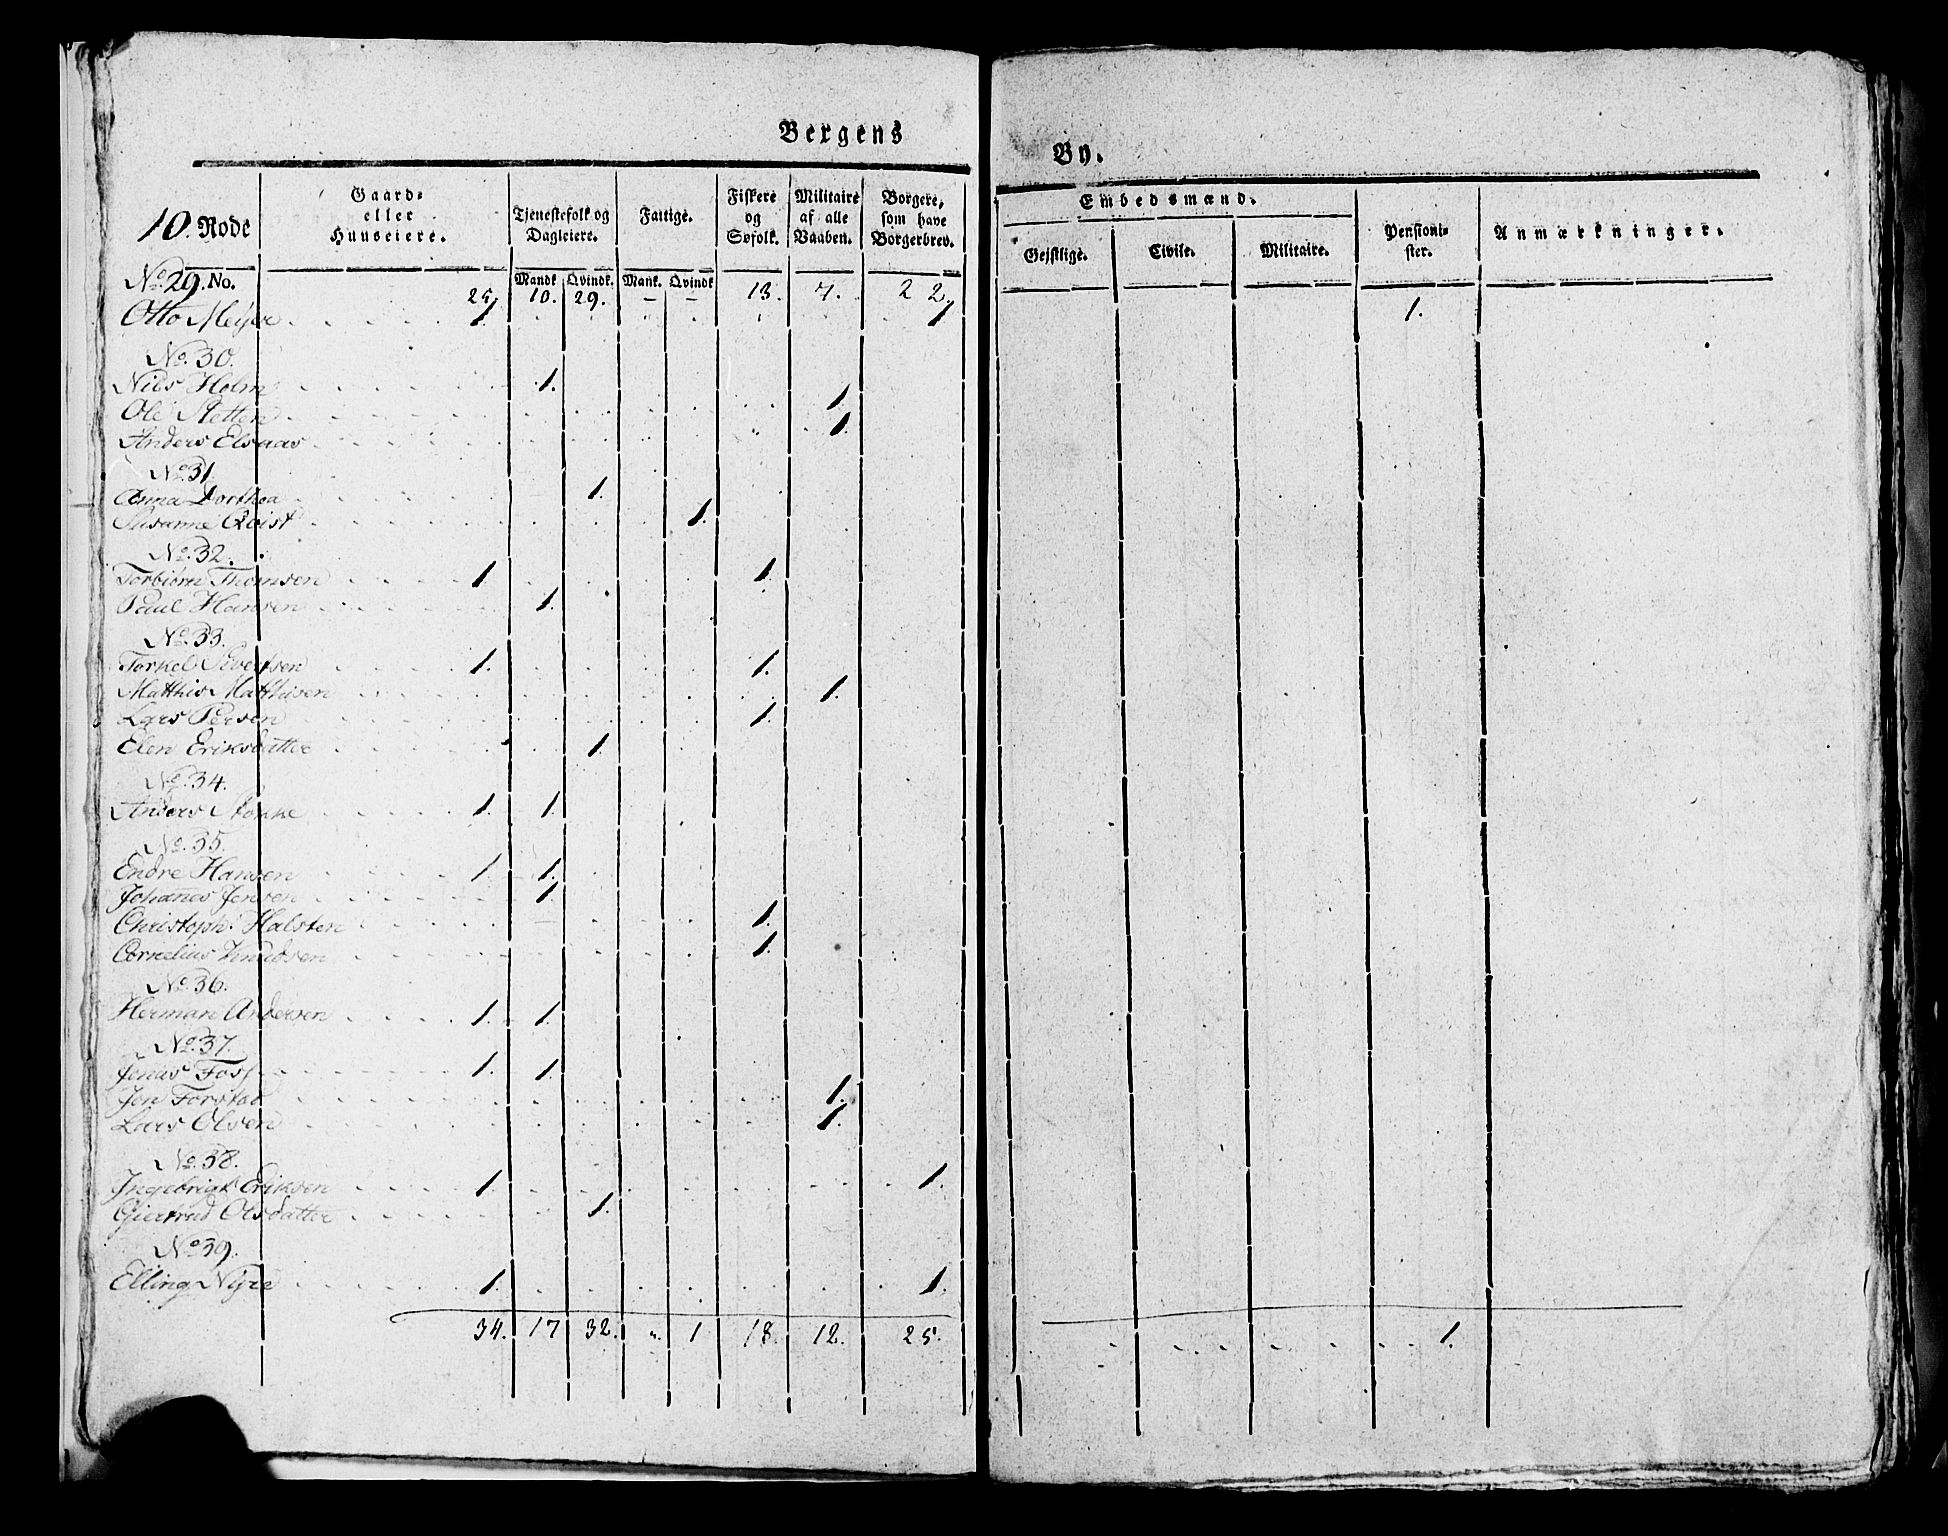 Bergens By.
10. Rode No. | Gaard- eller Huuseiere. | Tjenestefolk og Dagleiere. Mandk. Qvindk. | Fattige. Mank. Qvindk | Fiskere og Søfolk. | Militaire af alle Vaaben. | Borgere, som have Borgerbrev. | Embedsmænd. Gejstlige. Civile. Militaire. | Pensionister. | Anmærkninger.
25 10. 29. – – 13. 7. 22.
No. 29.
Otto Meijer 1. 1. 1.
No. 30.
Niels Holm 1.
Ole Sletten 1.
Anders Elsaas 1.
No. 31
Anna Dorthea 1.
Susanne Qvist 1.
No. 32.
Torbiørn Thomsen 1. 1.
Paul Hansen 1.
No. 33.
Torkel Sivertsen 1. 1.
Matthis Matthisen 1.
Lars Persen 1.
Elen Eriksdatter 1.
No. 34.
Anders Stokke 1. 1.
No. 35.
Endre Hansen 1. 1.
Johanes Jensen 1.
Christoph: Halsten 1.
Cornelius Knudsen 1.
No. 36.
Herman Andersen 1. 1.
No. 37.
Jonas Foss 1. 1.
Jon Forstad 1.
Lars Olsen 1.
No. 38.
Ingebrigt Eriksen 1. 1.
Giertrud Olsdatter 1.
No. 39.
Elling Nyre 1. 1.
34. 17 32. „ 1 18. 12. 25. 1.